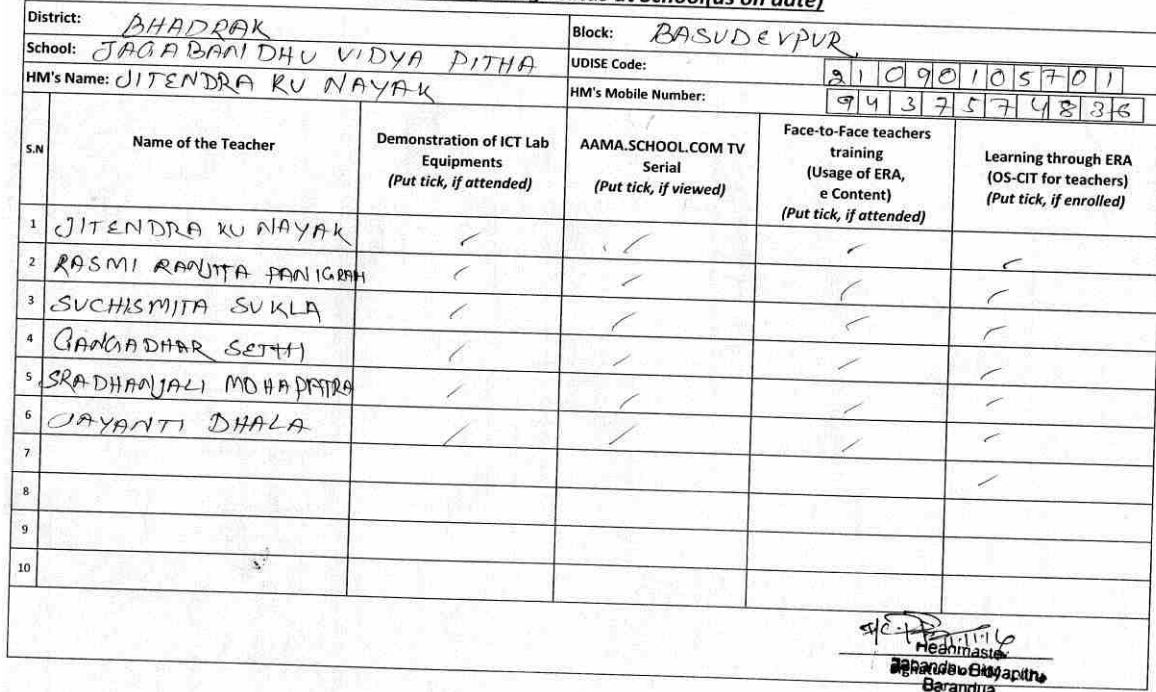 at School(as on date)
District: BHADRAK Block: BASUDEVPUR
School: JAGABANDHU VIDYA PITHA UDISE Code: 21090105701
HM's Name: JITENDRA KU NAYAK HM's Mobile Number: 9437574836
S.N Name of the Teacher Demonstration of ICT Lab Equipments (Put tick, if attended) AAMA.SCHOOL.COM TV Serial (Put tick, if viewed) Face-to-Face teachers training (Usage of ERA, e Content) (Put tick, if attended) Learning through ERA (OS-CIT for teachers) (Put tick, if enrolled)
1 JITENDRA KU NAYAK ✓ ✓ ✓ ✓
2 RASMI RANJITA PANIGRAH ✓ ✓ ✓ ✓
3 SUCHISMITA SUKLA ✓ ✓ ✓ ✓
4 GANGADHAR SETHI ✓ ✓ ✓ ✓
5 SRADHANJALI MOHAPATRA ✓ ✓ ✓ ✓
6 JAYANTI DHALA ✓ ✓ ✓ ✓
7
8
9
10
Headmaster
Barandua